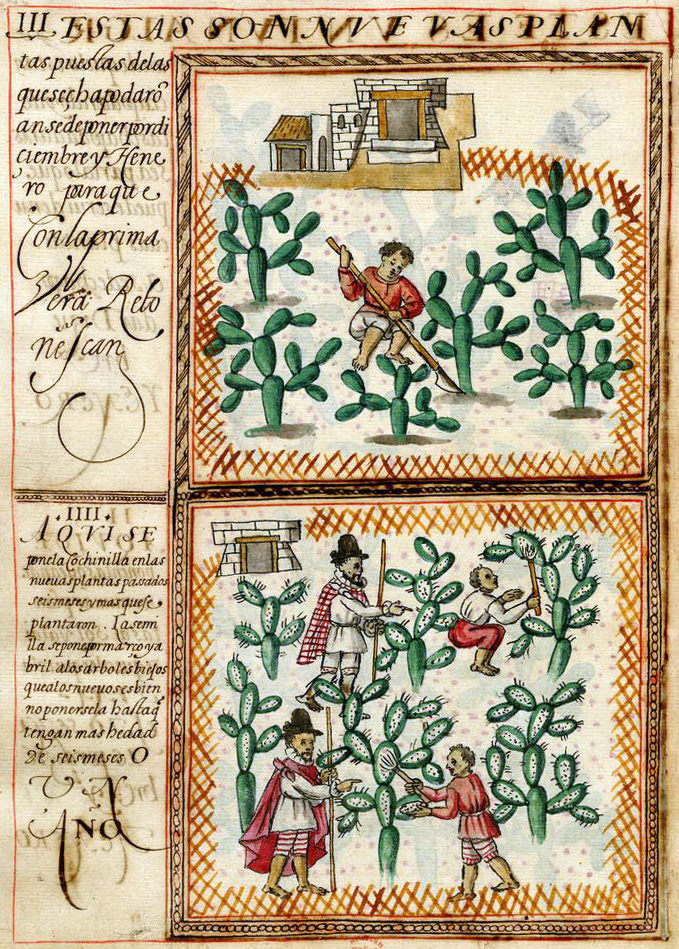 III ESTAS SON NVEVAS PLAN
tas puestas delas
que se chapodarõ
an se de poner por di
ciembre y Hene
ro para que
Con la prima
Vera Reto
nescan
IIII
AQVI SE
pone la Cochinilla en las
nueuas plantas passados
seis meses y mas que se
plantaron. La semi
lla se pone por março y a
bril. a los arboles biejos
que a los nuevos es bien
no ponersela hasta q̃
tengan mas hedad
de seis meses O
VN
AÑO